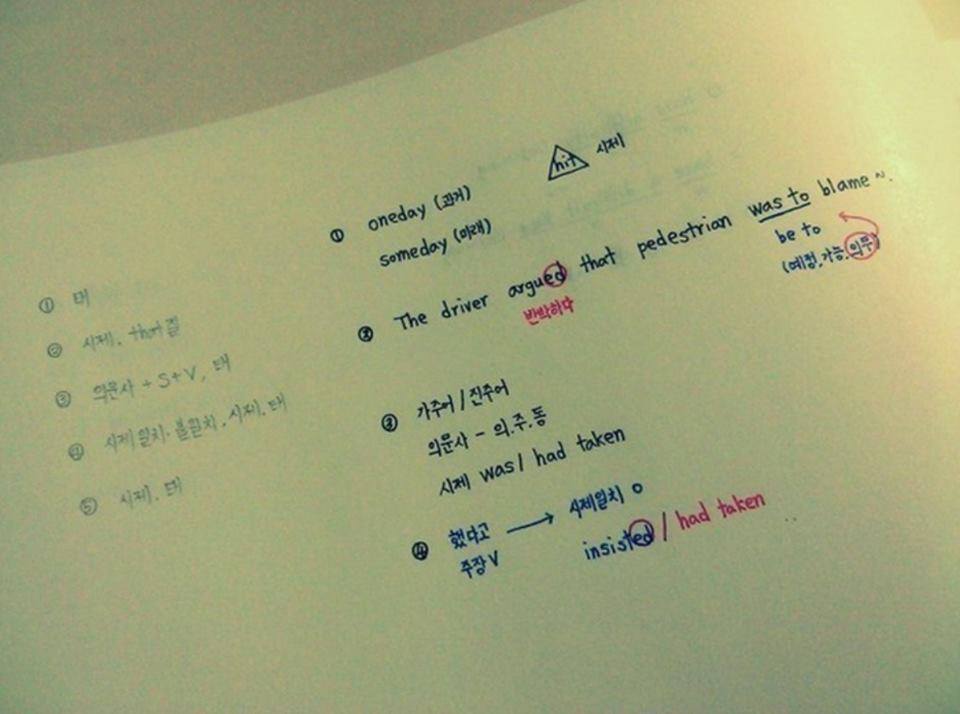 ① 태
② 시제. that절
③ 의문사 + S+V, 태
④ 시제일치·불일치, 시제. 태
⑤ 시제. 태
① oneday (과거) hit 시제
someday (미래)
② The driver argued that pedestrian was to blame ~.
반박하다
be to
(예정.가능.의무)
③ 가주어 / 진주어
의문사 - 의.주.동
시제 was / had taken
④ 했다고 → 시제일치 o
주장V insisted / had taken